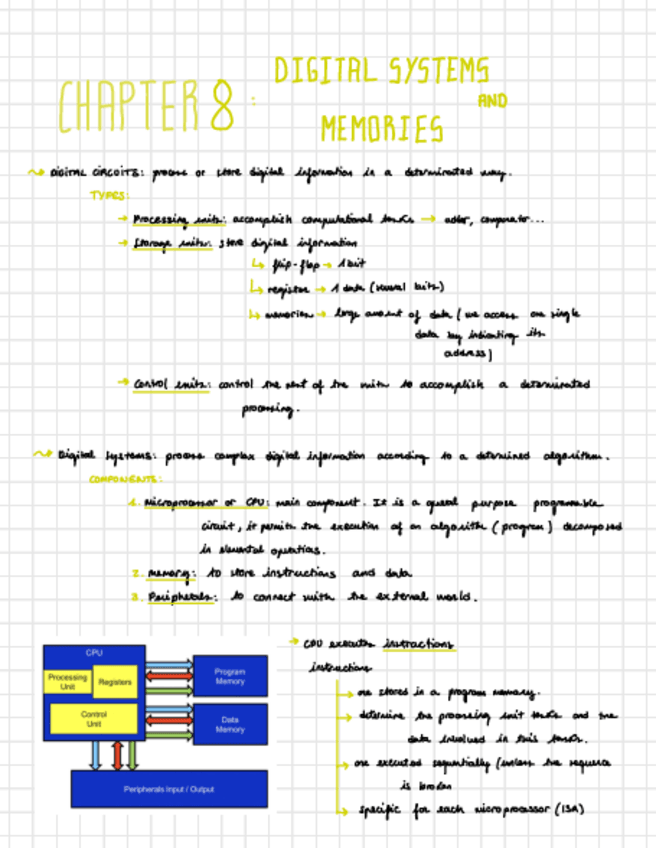 DIGITAL SYSTEMS
CHAPTER 8:
AND
MEMORIES
DIGITAL CIRCUITS: process or store digital information in a determinated way.
TYPES:
→ Processing units: accomplish computational tasks → adder, comparator...
→ Storage units: store digital information
↳ flip-flop → 1 bit
↳ register → 1 data (several bits)
↳ memories → large amount of data (we access one single
data by indicating its
address)
→ Control units: control the rest of the units to accomplish a determinated
processing.
Digital systems: process complex digital information according to a determined algorithm.
COMPONENTS:
1. Microprocessor or CPU: main component. It is a general purpose programmable
circuit, it permits the execution of an algorithm (program) decomposed
in elemental operations.
2. Memory: to store instructions and data
3. Peripherals: to connect with the external world.
CPU
Processing Unit
Registers
Control Unit
Program Memory
Data Memory
Peripherals Input / Output
→ CPU executes instructions
instructions
→ are stored in a program memory.
→ determine the processing unit tasks and the
data involved in this tasks.
→ are executed sequentially (unless the sequence
is broken
→ specific for each microprocessor (ISA)